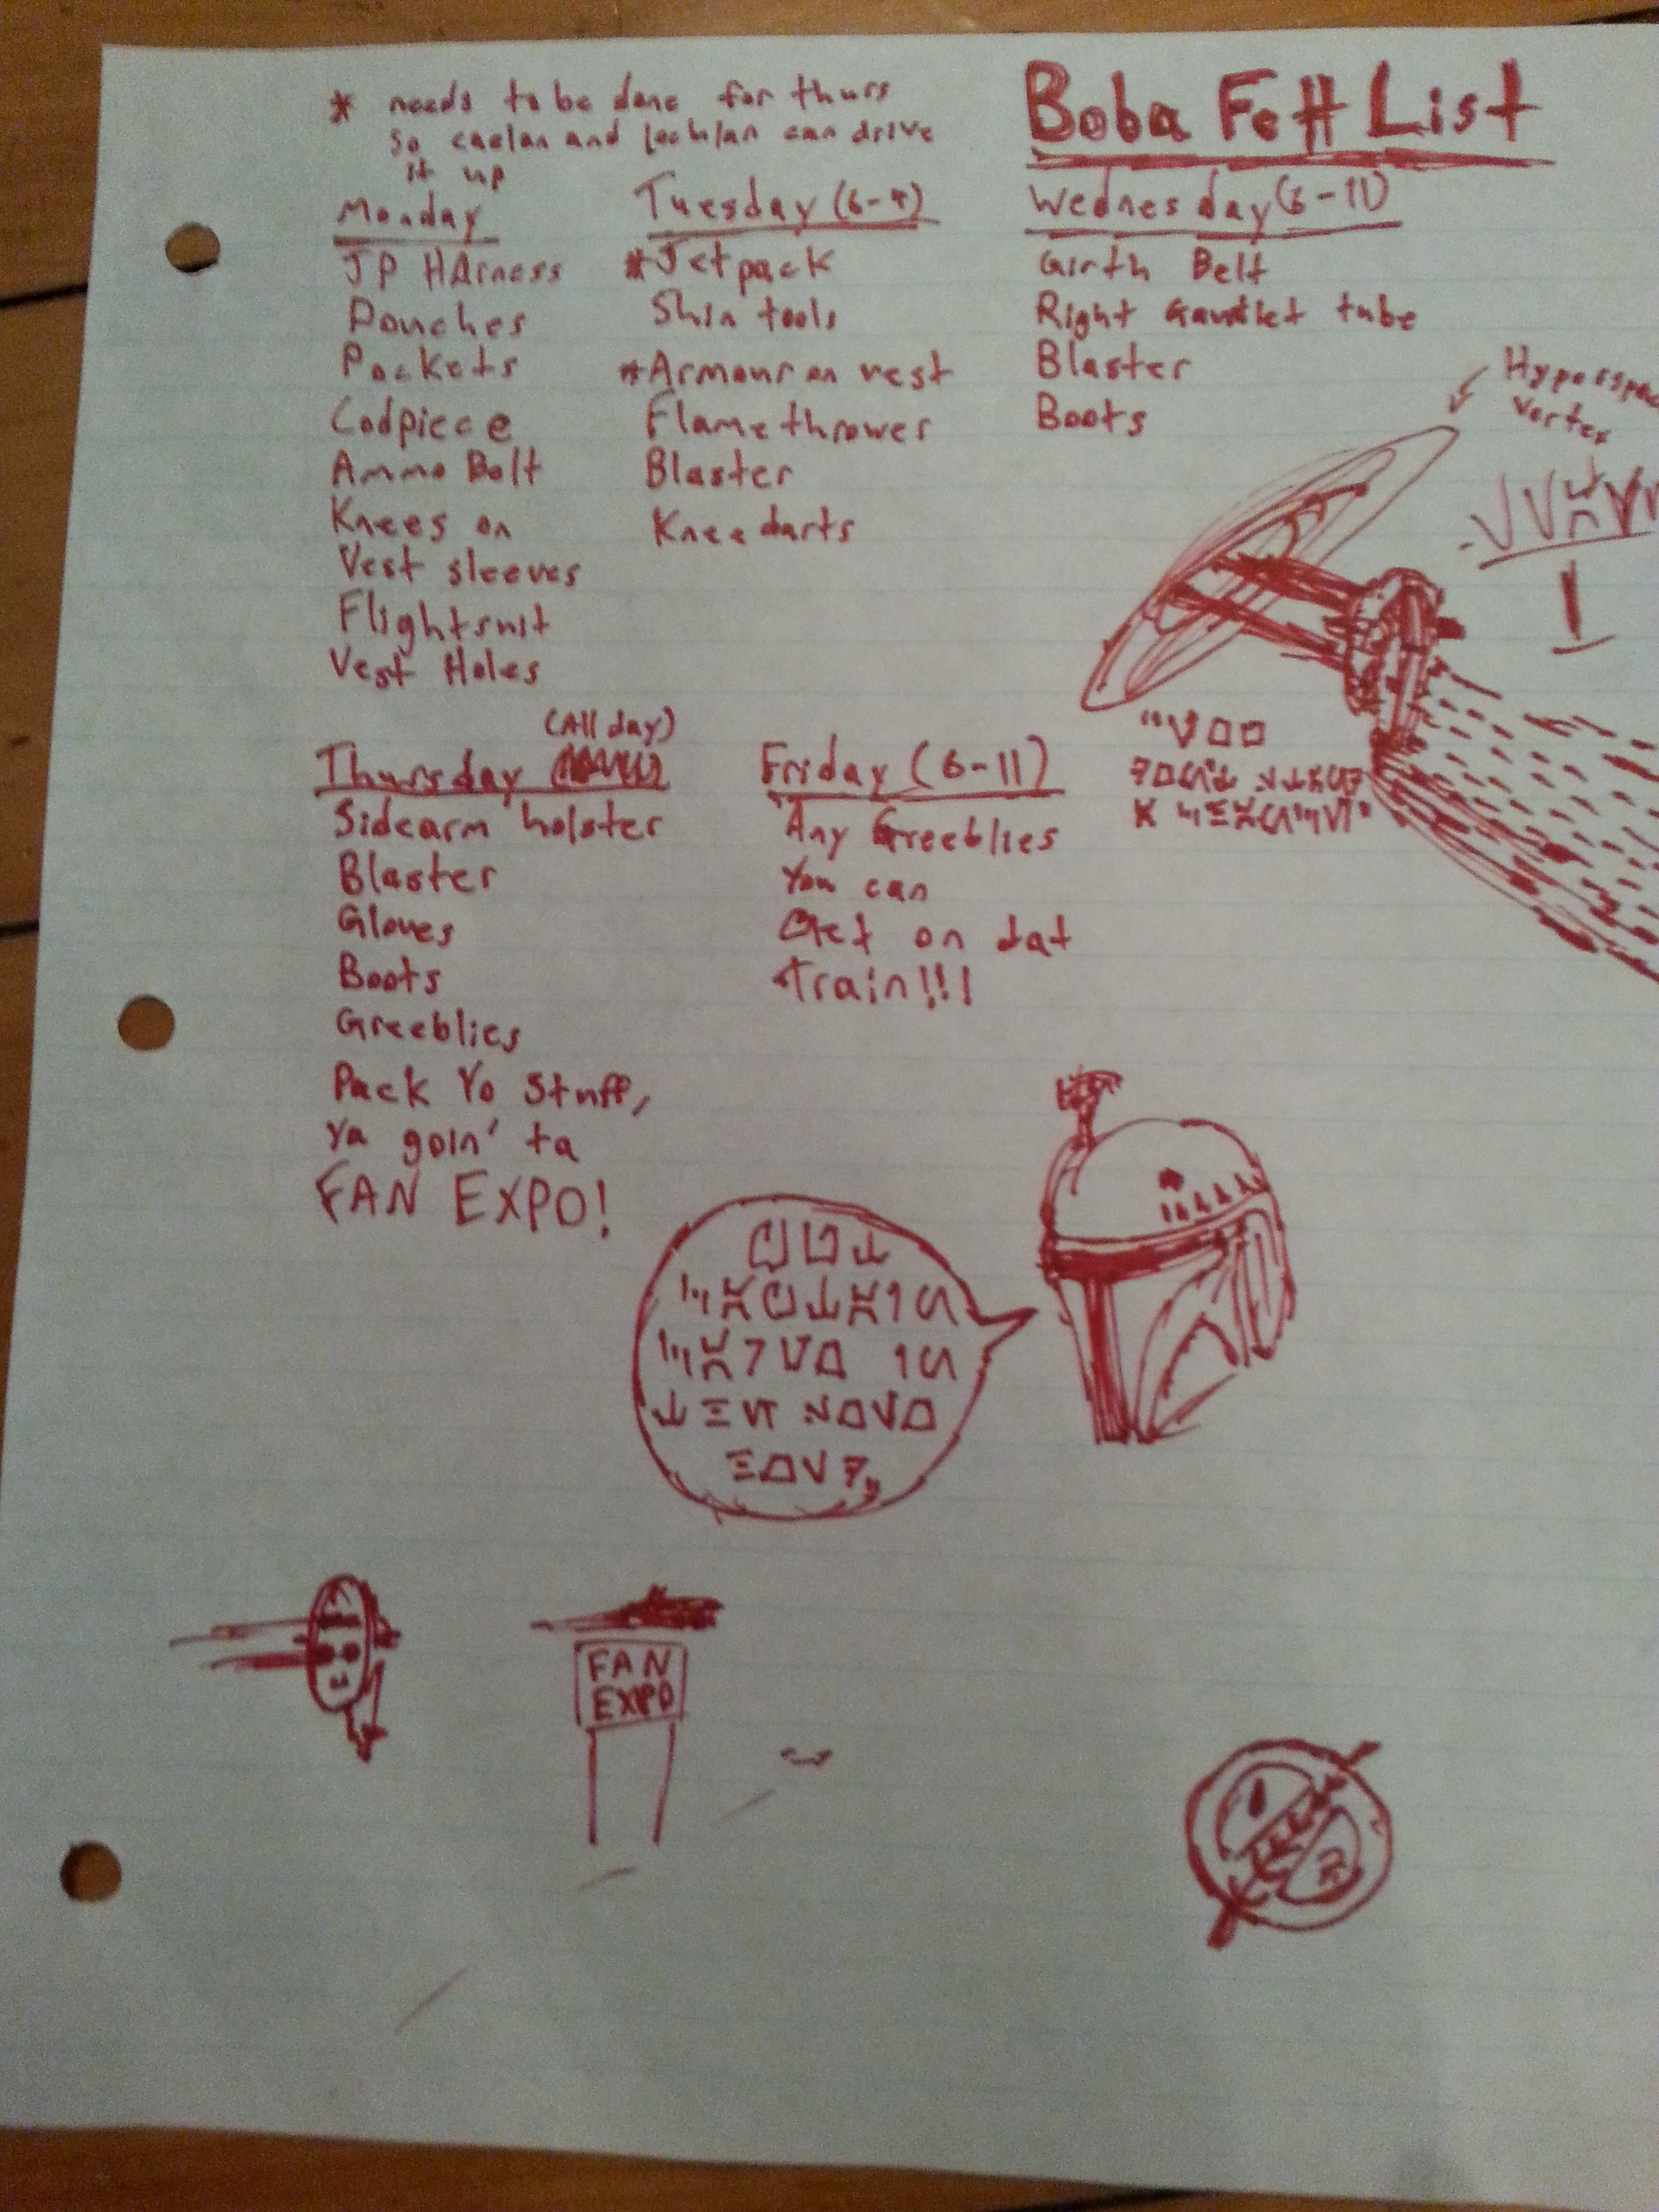 Boba Fett List
* needs to be done for thurs
so caelan and lochlan can drive
it up
Monday
JP HArness
Pouches
Pockets
Codpiece
Ammo Belt
Knees on
Vest sleeves
Flightsuit
Vest Holes
Tuesday (6-9)
*Jetpack
Shin tools
*Armour on vest
Flamethrower
Blaster
Knee darts
Wednesday (6-11)
Girth Belt
Right Gauntlet tube
Blaster
Boots
Vortex
(All day)
Thursday
Sidearm holster
Blaster
Gloves
Boots
Greeblies
Pack Yo Stuff,
Ya goin' ta
FAN EXPO!
Friday (6-11)
Any Greeblies
You can
Get on dat
Train!!!
FAN
EXPO